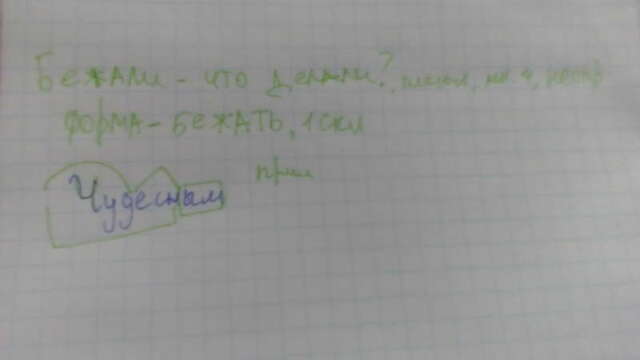 Бежали - что делали?, глагол, мн ч, неопр
форма - бежать, 1 скл
прил
Чудесным